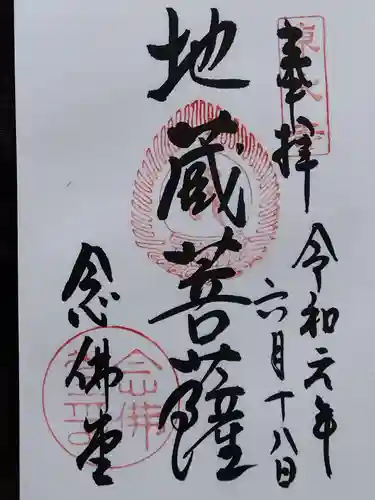 奉拝
東大寺
令和元年
六月十八日
地蔵菩薩
念佛堂